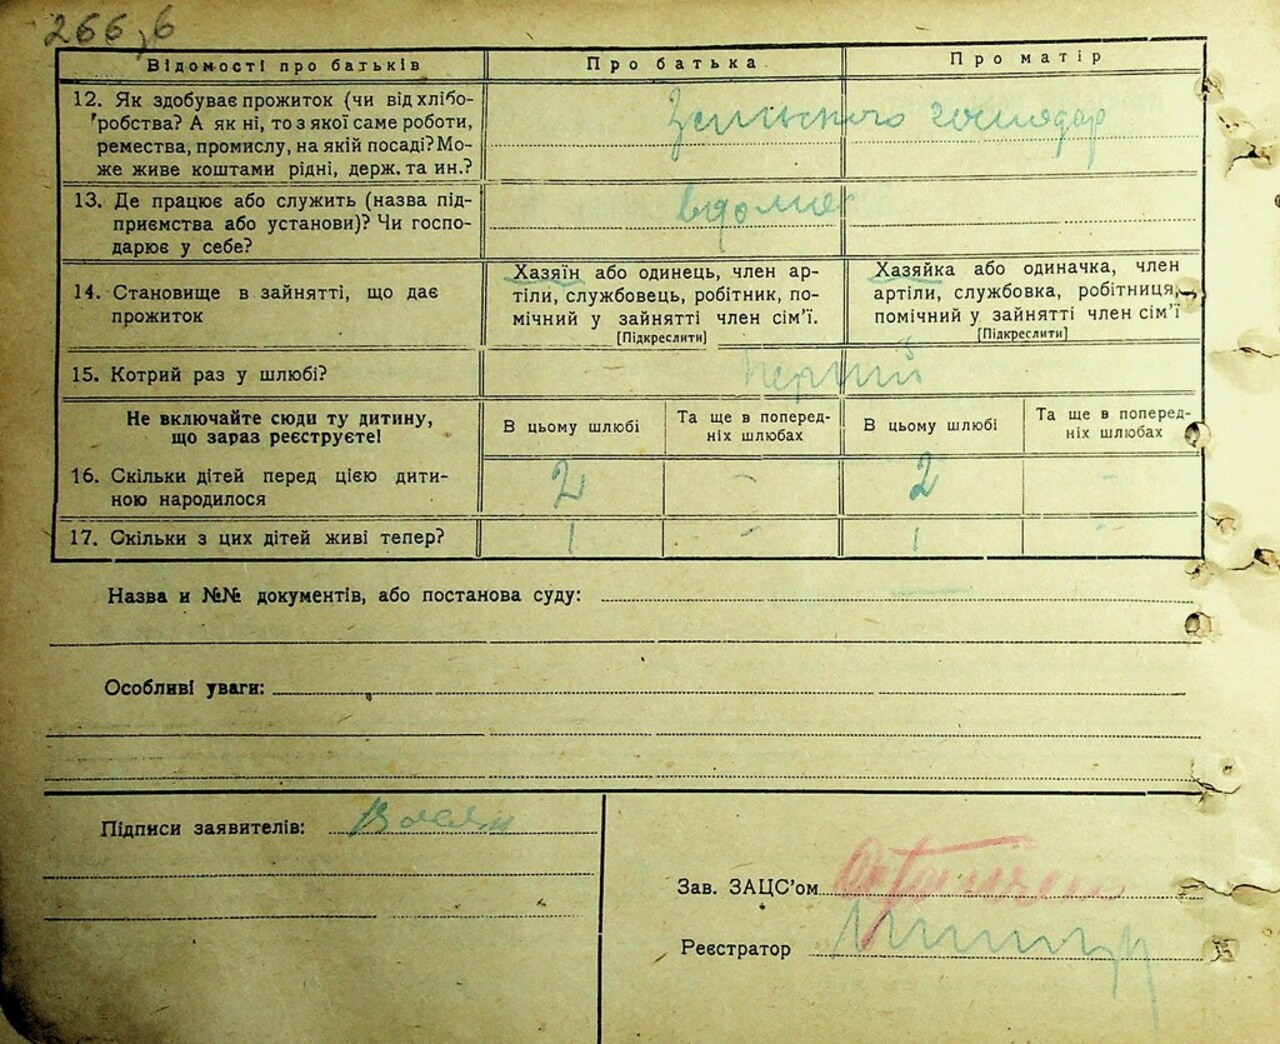 266,6
Відомості про батьків
Про батька
Про матір
12. Як здобуває прожиток (чи від хлібо-
робства? А як ні, то з якої саме роботи,
ремества, промислу, на якій посаді? Мо-
же живе коштами рідні, держ. та ин.?
Зсильского господар
13. Де працює або служить (назва під-
приємства або установи)? Чи госпо-
дарює у себе?
вдома
14. Становище в зайнятті, що дає
прожиток
Хазяїн або одинець, член ар-
тіли, службовець, робітник, по-
мічний у зайнятті член сім'ї.
[Підкреслити]
Хазяйка або одиначка, член
артіли, службовка, робітниця,
помічний у зайнятті член сім'ї
[Підкреслити]
15. Котрий раз у шлюбі?
перший
Не включайте сюди ту дитину,
що зараз реєструєте!
В цьому шлюбі
Та ще в поперед-
ніх шлюбах
В цьому шлюбі
Та ще в поперед-
ніх шлюбах
16. Скільки дітей перед цією дити-
ною народилося
2 - 2 -
17. Скільки з цих дітей живі тепер?
1 - 1 -
Назва и №№ документів, або постанова суду:
Особливі уваги:
Підписи заявителів:
Зав. ЗАЦС'ом
Реєстратор